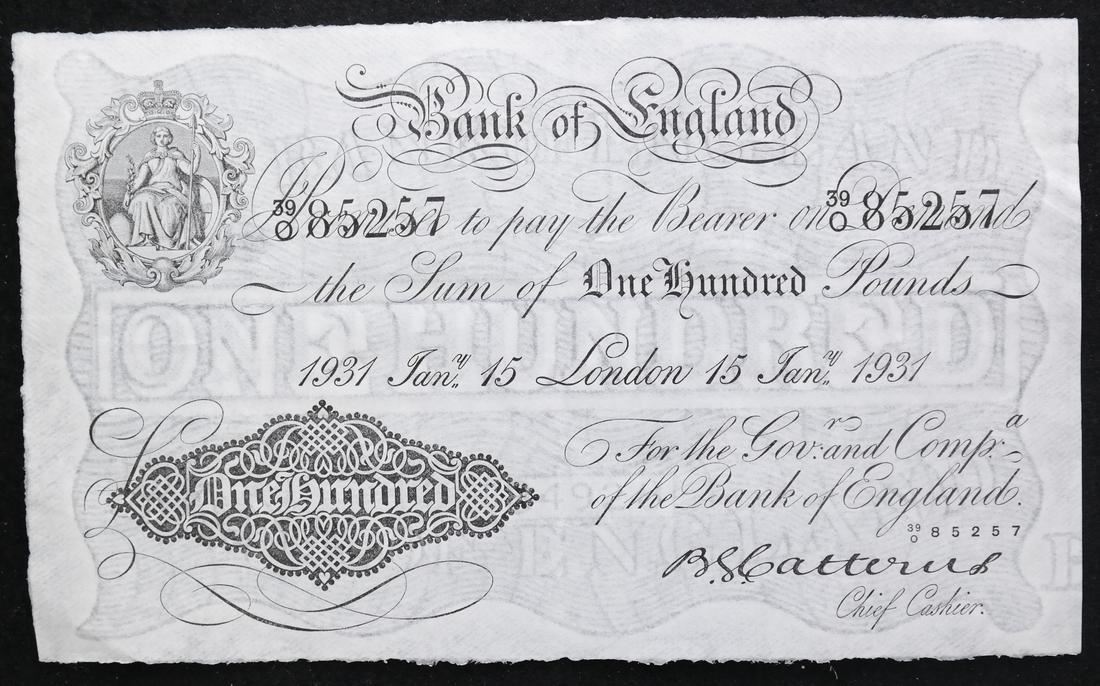 Bank of England
I Promise to pay the Bearer on Demand
39/0 85257 39/0 85257
the Sum of One Hundred Pounds
ONE HUNDRED
1931 Jan.y 15 London 15 Jan.y 1931
For the Gov.r and Comp.a
£ One Hundred
of the Bank of England.
39/0 85257
B.G. Catterns
Chief Cashier.